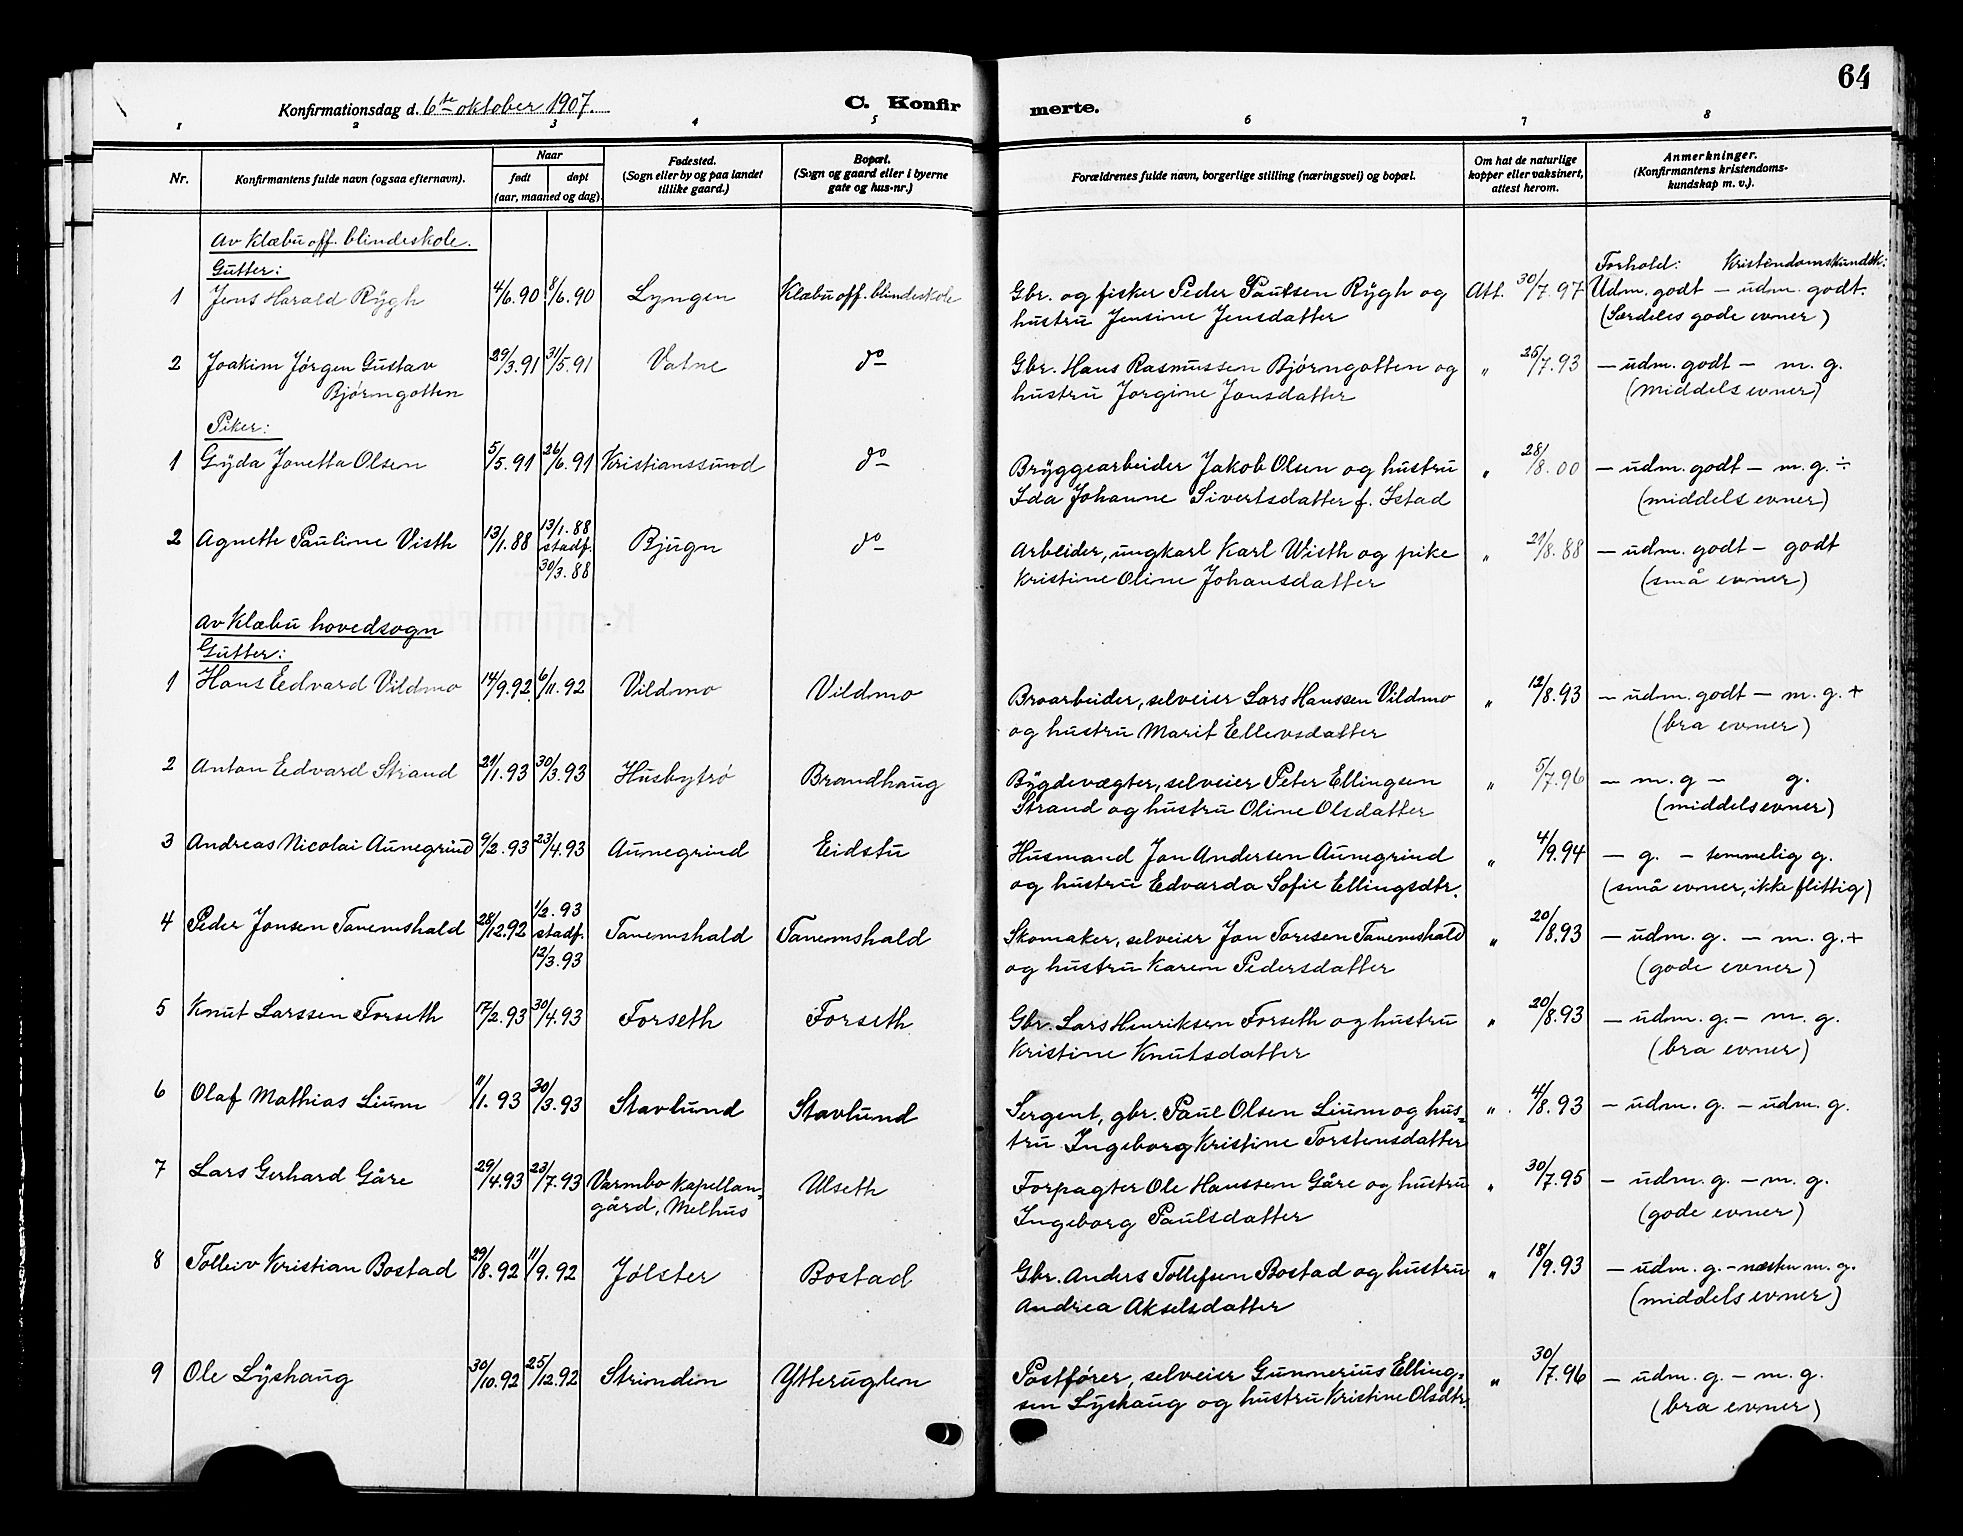 64
Konfirmationsdag d. 6te oktober 1907.
C. Konfirmerte.
1 2 3 4 5 6 7 8
Nr.
Konfirmantens fulde navn (ogsaa efternavn).
Naar
født døpt
(aar, maaned og dag).
Fødested.
(Sogn eller by og paa landet
tillike gaard.)
Bopæl.
(Sogn og gaard eller i byerne
gate og hus-nr.)
Forældrenes fulde navn, borgerlige stilling (næringsvei) og bopæl.
Om hat de naturlige
kopper eller vaksinert,
attest herom.
Anmerkninger.
(Konfirmantens kristendoms-
kundskap m. v.).
Av Klæbu off. blindeskole.
Gutter:
Forhold: Kristendomskundsk:
1 Jens Harald Rygh 4/6.90 8/6.90 Lyngen Klæbu off. blindeskole Gbr. og fisker Peder Paulsen Rygh og Att. 30/7.97 Udm. godt – udm. godt.
hustru Jensine Jensdatter (Særdeles gode evner)
2 Joakim Jørgen Gustav 29/3.91 31/5.91 Vatne do Gbr. Hans Rasmussen Bjørngotten og " 25/7.93 – udm. godt – m. g.
Bjørngotten hustru Jorgine Jonsdatter (Middels evner)
Piker:
1 Gyda Jonetta Olsen 5/5.91 26/6.91 Kristianssund do Bryggearbeider Jakob Olsen og hustru " 28/8.00 – udm. godt – m. g. ÷
Ida Johanne Sivertsdatter f. Istad (middels evner)
2 Agnette Pauline Visth 13/1.88 13/1.88 stadf. 30/3.88 Bjugn do Arbeider, ungkarl Karl Wisth og pike " 21/8.88 – udm. godt – godt
Kristine Oline Johansdatter (små evner)
Av Klæbu hovedsogn
Gutter:
1 Hans Edvard Vildmo 14/9.92 6/11.92 Vildmo Vildmo Broarbeider, selveier Lars Hanssen Vildmo " 12/8.93 – udm. godt – m. g. +
og hustru Marit Ellevsdatter (bra evner)
2 Anton Edvard Strand 21/1.93 30/3.93 Husbytrø Brandhaug Bygdevægter, selveier Peter Ellingsen " 5/7.96 – m. g – g.
Strand og hustru Oline Olsdatter (middels evner)
3 Andreas Nicolai Aunegrind 9/2.93 23/4.93 Aunegrind Eidstu Husmand Jon Andersen Aunegrind " 4/9.94 – g. – temmelig g.
og hustru Edvarda Sofie Ellingsdtr. (små evner, ikke flittig)
4 Peder Jonsen Tanemshald 28/12.92 1/2.93 stadf. 12/3.93 Tanemshald Tanemshald Skomaker, selveier Jon Toresen Tanemshald " 20/8.93 – udm. g. – m. g. +
og hustru Karen Pedersdatter (gode evner)
5 Knut Larssen Forseth 17/2.93 30/4.93 Forseth Forseth Gbr. Lars Henriksen Forseth og hustru " 20/8.93 – udm. g. – m. g.
Kristine Knutsdatter (bra evner)
6 Olaf Mathias Lium 11/1.93 30/3.93 Stavlund Stavlund Sergent, gbr. Paul Olsen Lium og hus- " 4/8.93 – udm. g. – udm. g.
tru Ingeborg Kristine Torstensdatter
7 Lars Gerhard Gåre 29/4.93 23/7.93 Varmbo kapellan- Ulseth Forpagter Ole Hanssen Gåre og hustru " 30/7.95 – udm. g. – m. g.
gård, Melhus Ingeborg Paulsdatter (gode evner)
8 Tolleiv Kristian Bostad 29/8.92 11/9.92 Jølster Bostad Gbr. Anders Tollefsen Bostad og hustru " 18/9.93 – udm. g. – næsten m. g.
Andrea Akselsdatter (middels evner)
9 Ole Lyshaug 30/10.92 25/12.92 Strinden Ytteruglen Postfører, selveier Gunnerius Elling- " 30/7.96 – udm. g. – m. g.
sen Lyshaug og hustru Kristine Olsdtr. (bra evner)